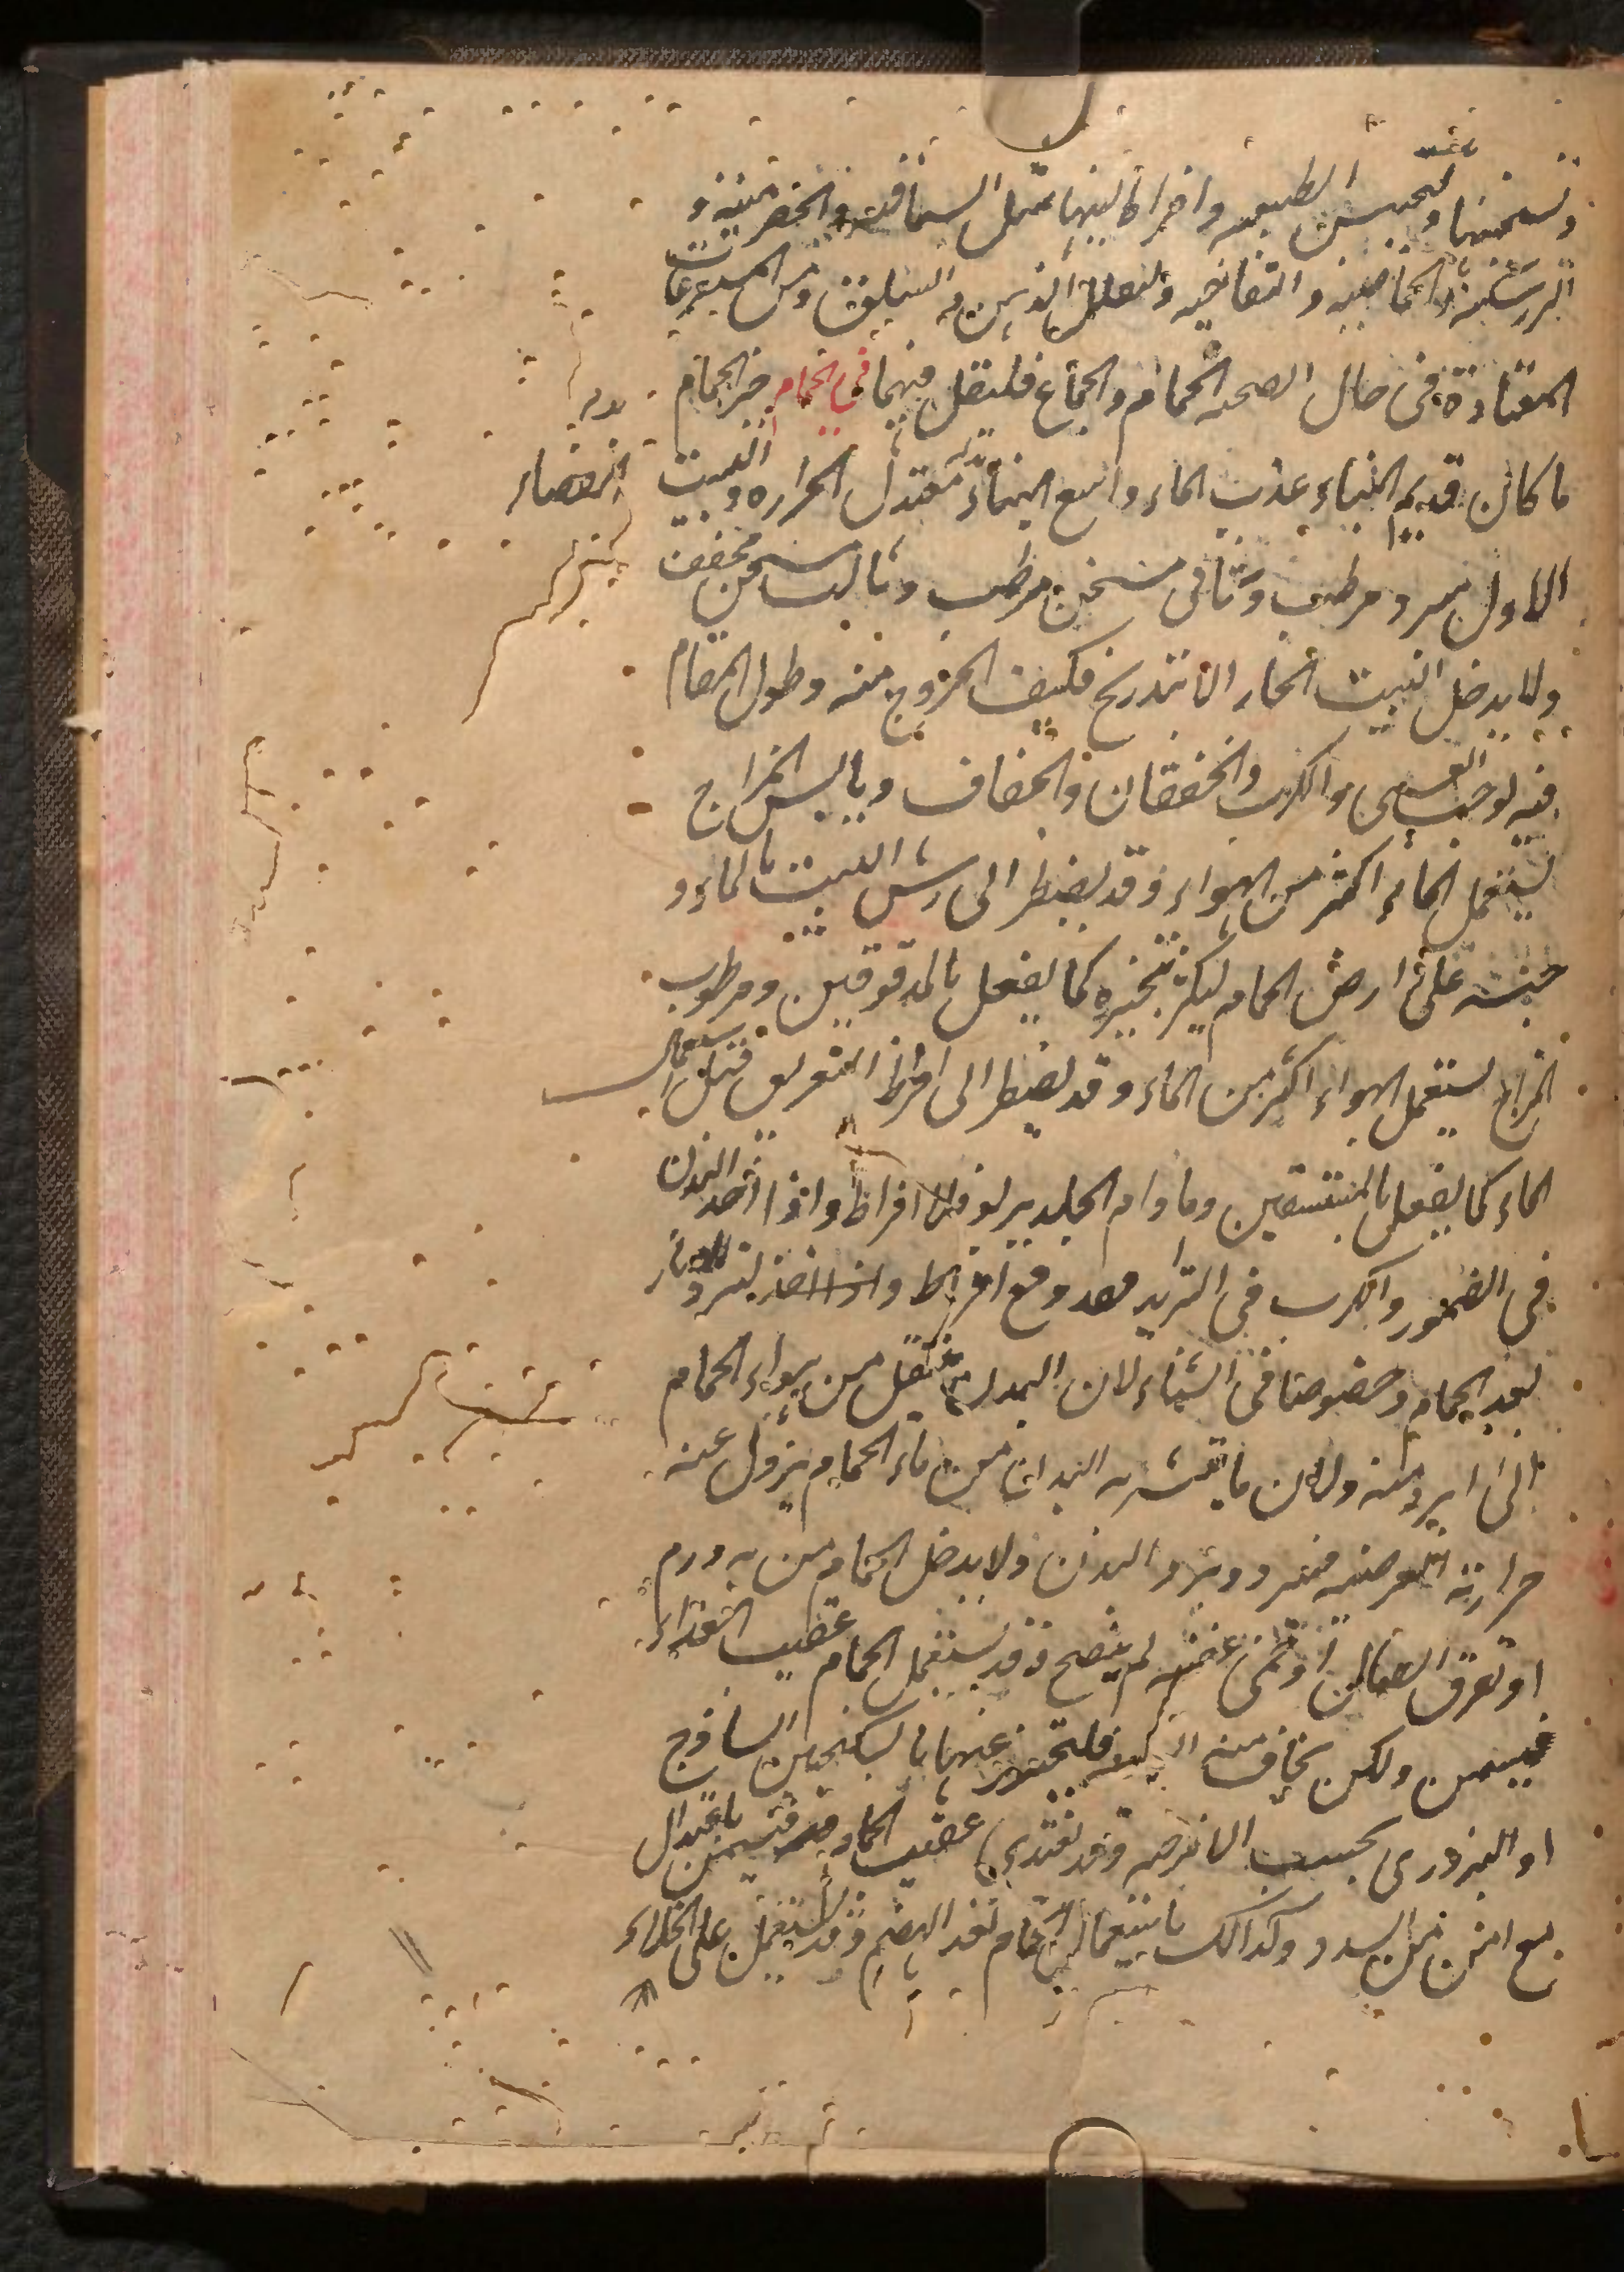 وتسخينها ولحبس الطبيعه وافراط لينها مثل السماقيه والحصرميه و
الزرشكيه والحماضيه والتفاحيه وليقلل الدسم و السلق ومن المسرعات
المعتادة فى حال الصحه الحمام والجماع فلنقل فيهما فى الحمام خير الحمام
ما كان قديم البناء عذب الماء واسع الفناء معتدل الحراره والبيت
الفضاء
الاول مبرد مرطب وثانى مسخن مرطب وثالث مسخن مجفف
ولا يدخل البيت الحار الا بتدريج فكيف الخروج منه وطول المقام
فيه يوجب الغشى والكرب والخفقان والجفاف ويابس المزاج
يستعمل الماء اكثر من الهواء وقد يضطر الى رش البيت بالماء و
على ارض الحمام ليكثر تبخيره كما يفعل بالمدقوقين ومرطوب
المزاج يستعمل الهواء اكثر من الماء وقد يضطر الى افراط التعريق قبل استعمال
الماء كما يفعل بالمستسقين وما دام الجلد يربو فلا افراط واذا اخذ البدن
فى الضمور والكرب فى التزيد فقد وقع افراط وليزد الدثار
بعد الحمام وخصوصا فى الشتاء لان البدن ينتقل من هواء الحمام
الى ابرد منه ولان ما يتشربه البدن من ماء الحمام يزول عنه
حرارته العرضيه فيبرد ويبرد البدن ولا يدخل الحمام من به ورم
او تفرق اتصال او حمى عفنيه لم ينضج وقد يستعمل الحمام عقيب الغذاء
فيسمن ولكن يخاف منه السدد فليحترز عنها بالسكنجبين الساذج
او البزورى بحسب الامزجه وقد يغتدى عقيب الحمام فيسمن باعتدال
مع امن من السدد وكذالك باستعمال الحمام بعد الهضم وقد يستعمل على الخلاء